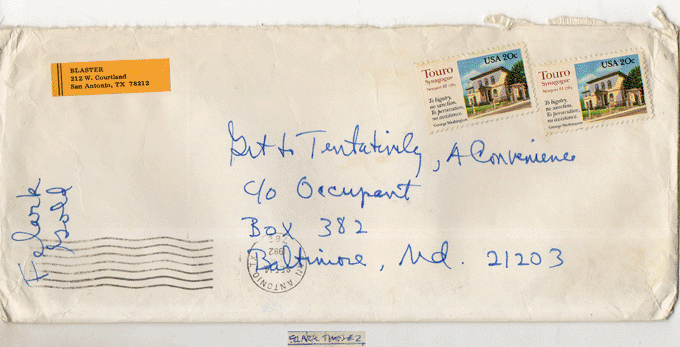 BLASTER
212 W. Courtland
San Antonio, TX 78212
Touro
Synagogue
Newport RI 1763
USA 20c
To bigotry,
no sanction.
To persecution,
no assistance.
George Washington
Touro
Synagogue
Newport RI 1763
USA 20c
To bigotry,
no sanction.
To persecution,
no assistance.
George Washington
to Tentatively, A Convenience
c/o Occupant
Box 382
Baltimore, Md. 21203
SAN ANTONIO, TX
1982